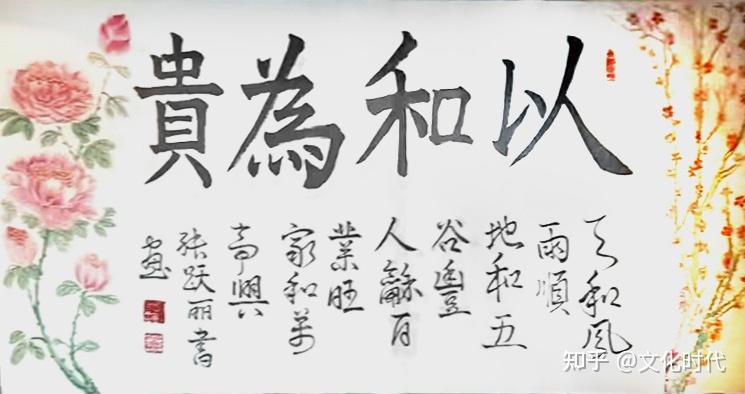 以和為貴
天和風
雨順
地和五
谷豐
人龢百
業旺
家和萬
事興
张跃丽書
画
知乎 @文化时代